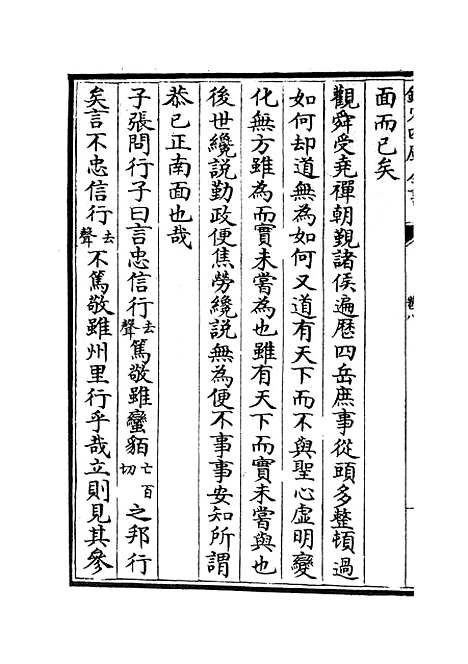 面而已矣
觀舜受堯禪朝覲諸侯遍歷四岳庶事從頭多整頓過
如何却道無為如何又道有天下而不與聖心虛明變
化無方雖為而實未嘗為也雖有天下而實未嘗與也
後世纔説勤政便焦勞纔説無為便不事事安知所謂
恭已正南面也哉
子張問行子曰言忠信行去聲篤敬雖蠻貊亡百切之邦行
矣言不忠信行去聲不篤敬雖州里行乎哉立則見其參